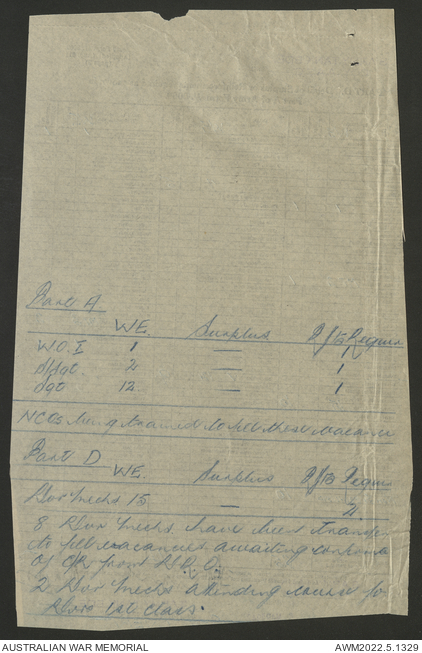 Part A
WE. Surplus Rftg Requir
W.O.I 1 — 1
S/Sgt 2 — 1
Sgt 12 — 1
NCOs being trained to fill these vacancies
Part D
WE. Surplus Requir
Dvr Mechs 15 — 2
8 Dvr Mechs have been transfer
to fill vacancies awaiting
of from
2 Dvr Mechs attending course for
Dvrs 1st Class.
AUSTRALIAN WAR MEMORIAL AWM2022.5.1329